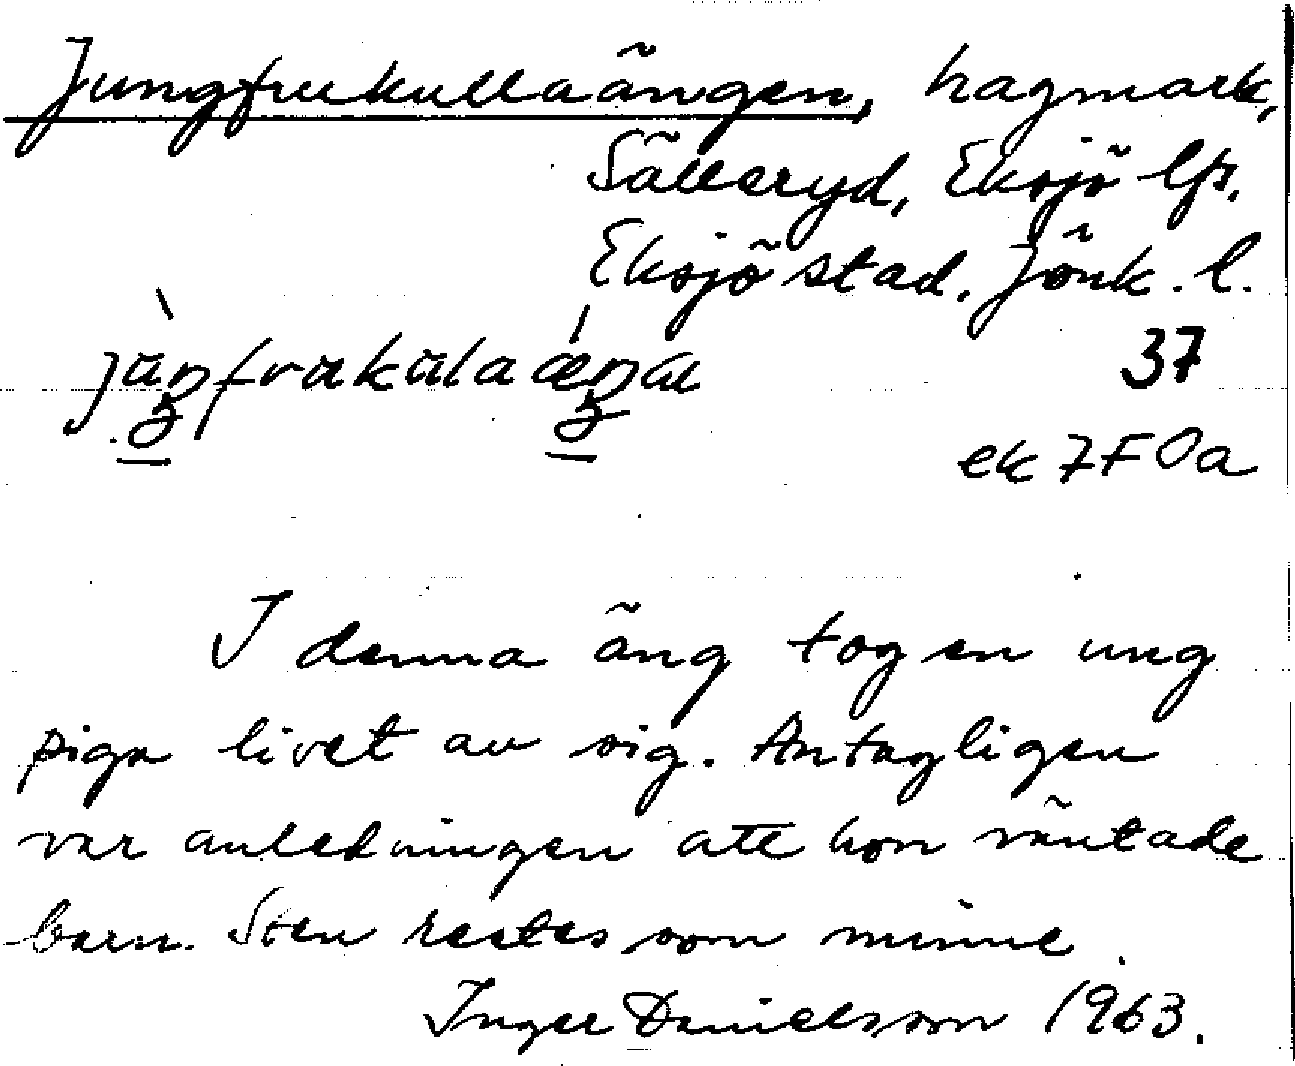 Jungfrukullaängen, hagmark,
Sälleryd, Eksjö lfs.
Eksjö stad. Jönk. l.
37
ek 7F 0a
I denna äng tog en ung
piga livet av sig. Antagligen
var anledningen att hon väntade
barn. Sten restes som minne.
Inger Danielsson 1963.